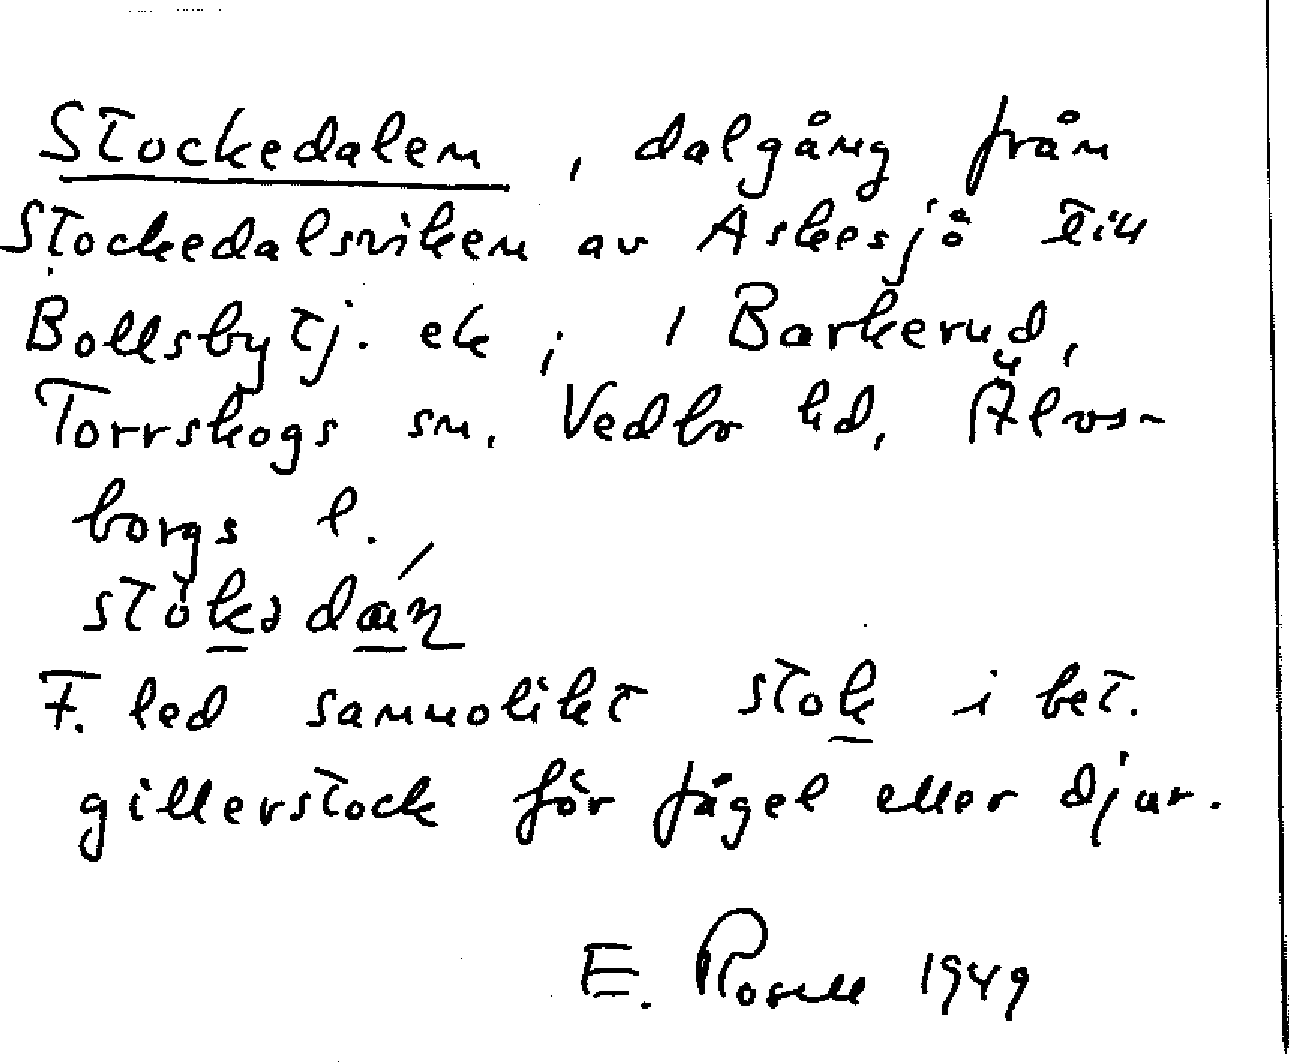 Stockedalen, dalgång från
Stockedalsviken av Askesjö till
Bollsbytj. ek i Barkerud,
Torrskogs sn. Vedbo hd, Älvs-
borgs l.
F. led sannolikt stok i bet.
gillerstock för fågel eller djur.
E. Rosell 1949